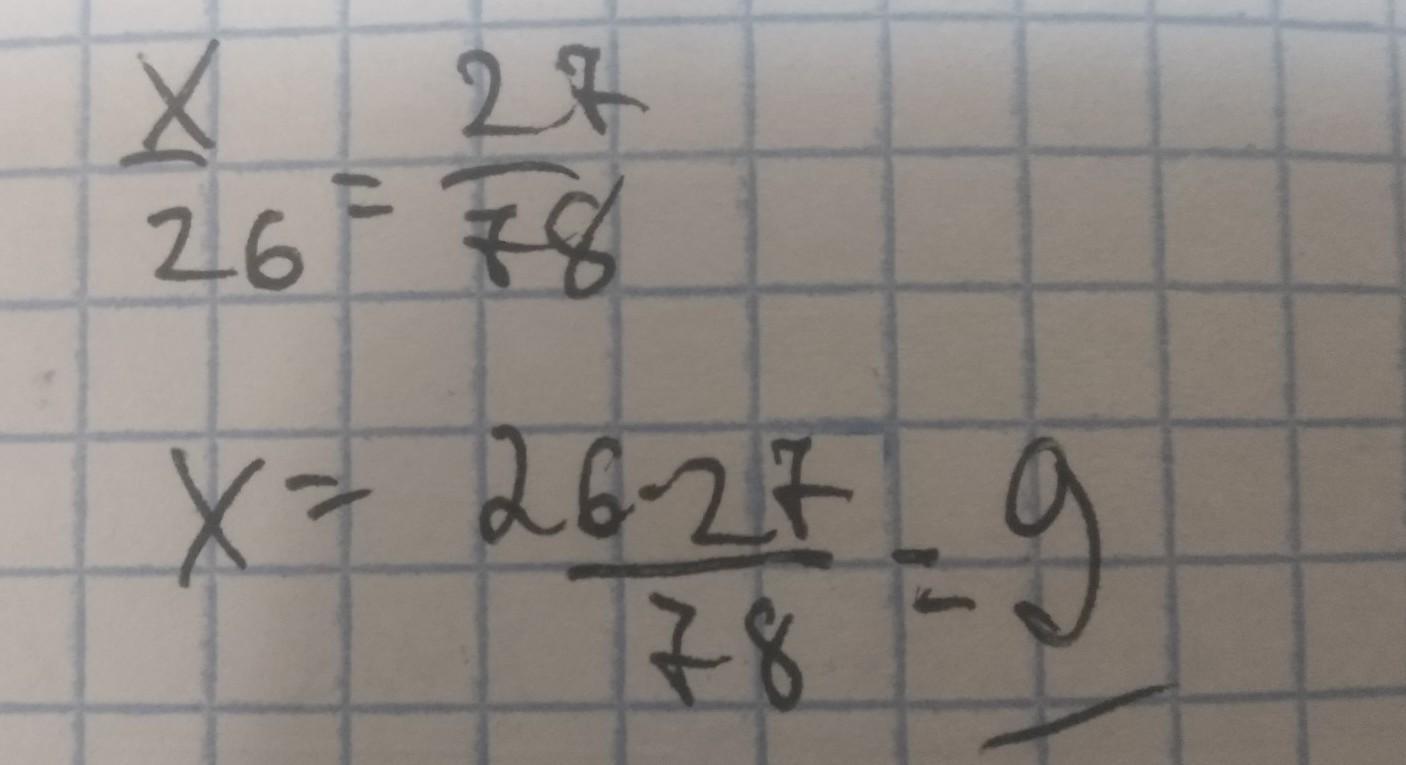 x/26 = 27/78
x = 26·27/78 = 9